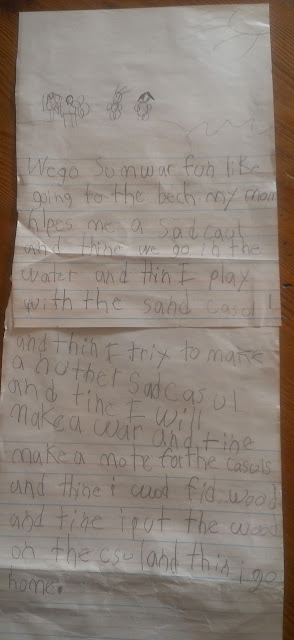 We go sumwar fon like
going to the bech my mom
hlpes me a sadcaul
and thine we go in the
water and thin I play
with the sand casul !
and thin I triy to make
a nuther Sadcasul
and tine I will
make a war and tine
make a mote for the casuls
and thine i cwd fid wood
and tine i put the wood
on the csul and thin i go
home.